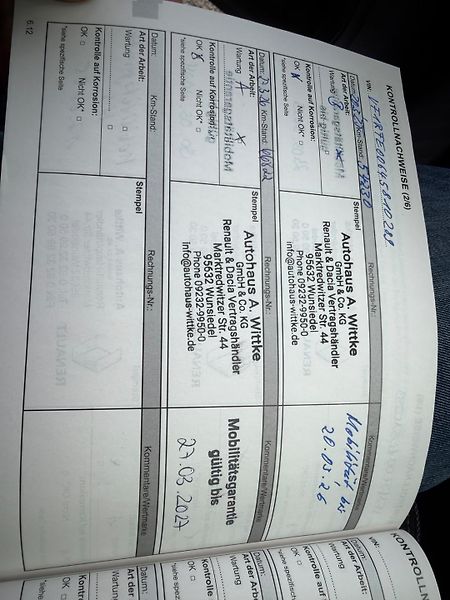 KONTROLLNACHWEISE (2/6)
VIN:
Datum:
Km-Stand:
Rechnungs-Nr.:
Kommentare/Wertmarke
Art der Arbeit:
Stempel
Wartung
Kontrolle auf Korrosion:
OK
Nicht OK*
*siehe spezifische Seite
Autohaus A. Wittke
GmbH & Co. KG
Renault & Dacia Vertragshändler
Marktredwitzer Str. 44
95632 Wunsiedel
Phone 09232-9950-0
info@autohaus-wittke.de
bis
20.03.26
Datum:
Km-Stand:
Rechnungs-Nr.:
Kommentare/Wertmarke
Art der Arbeit:
Stempel
Wartung
Kontrolle auf Korrosion:
OK
Nicht OK*
*siehe spezifische Seite
Autohaus A. Wittke
GmbH & Co. KG
Renault & Dacia Vertragshändler
Marktredwitzer Str. 44
95632 Wunsiedel
Phone 09232-9950-0
info@autohaus-wittke.de
Mobilitätsgarantie
gültig bis
27.03.2027
Datum:
Km-Stand:
Rechnungs-Nr.:
Kommentare/Wertmarke
Art der Arbeit:
Stempel
Wartung
Kontrolle auf Korrosion:
OK
Nicht OK*
*siehe spezifische Seite
6.12
KONTROLLN
VIN:
Datum:
Art der Arbeit:
Wartung
Kontrolle auf
OK
*siehe spezifische
Datum:
Art der
Wartung
Kontrolle
OK
*siehe spe
Datum:
Art